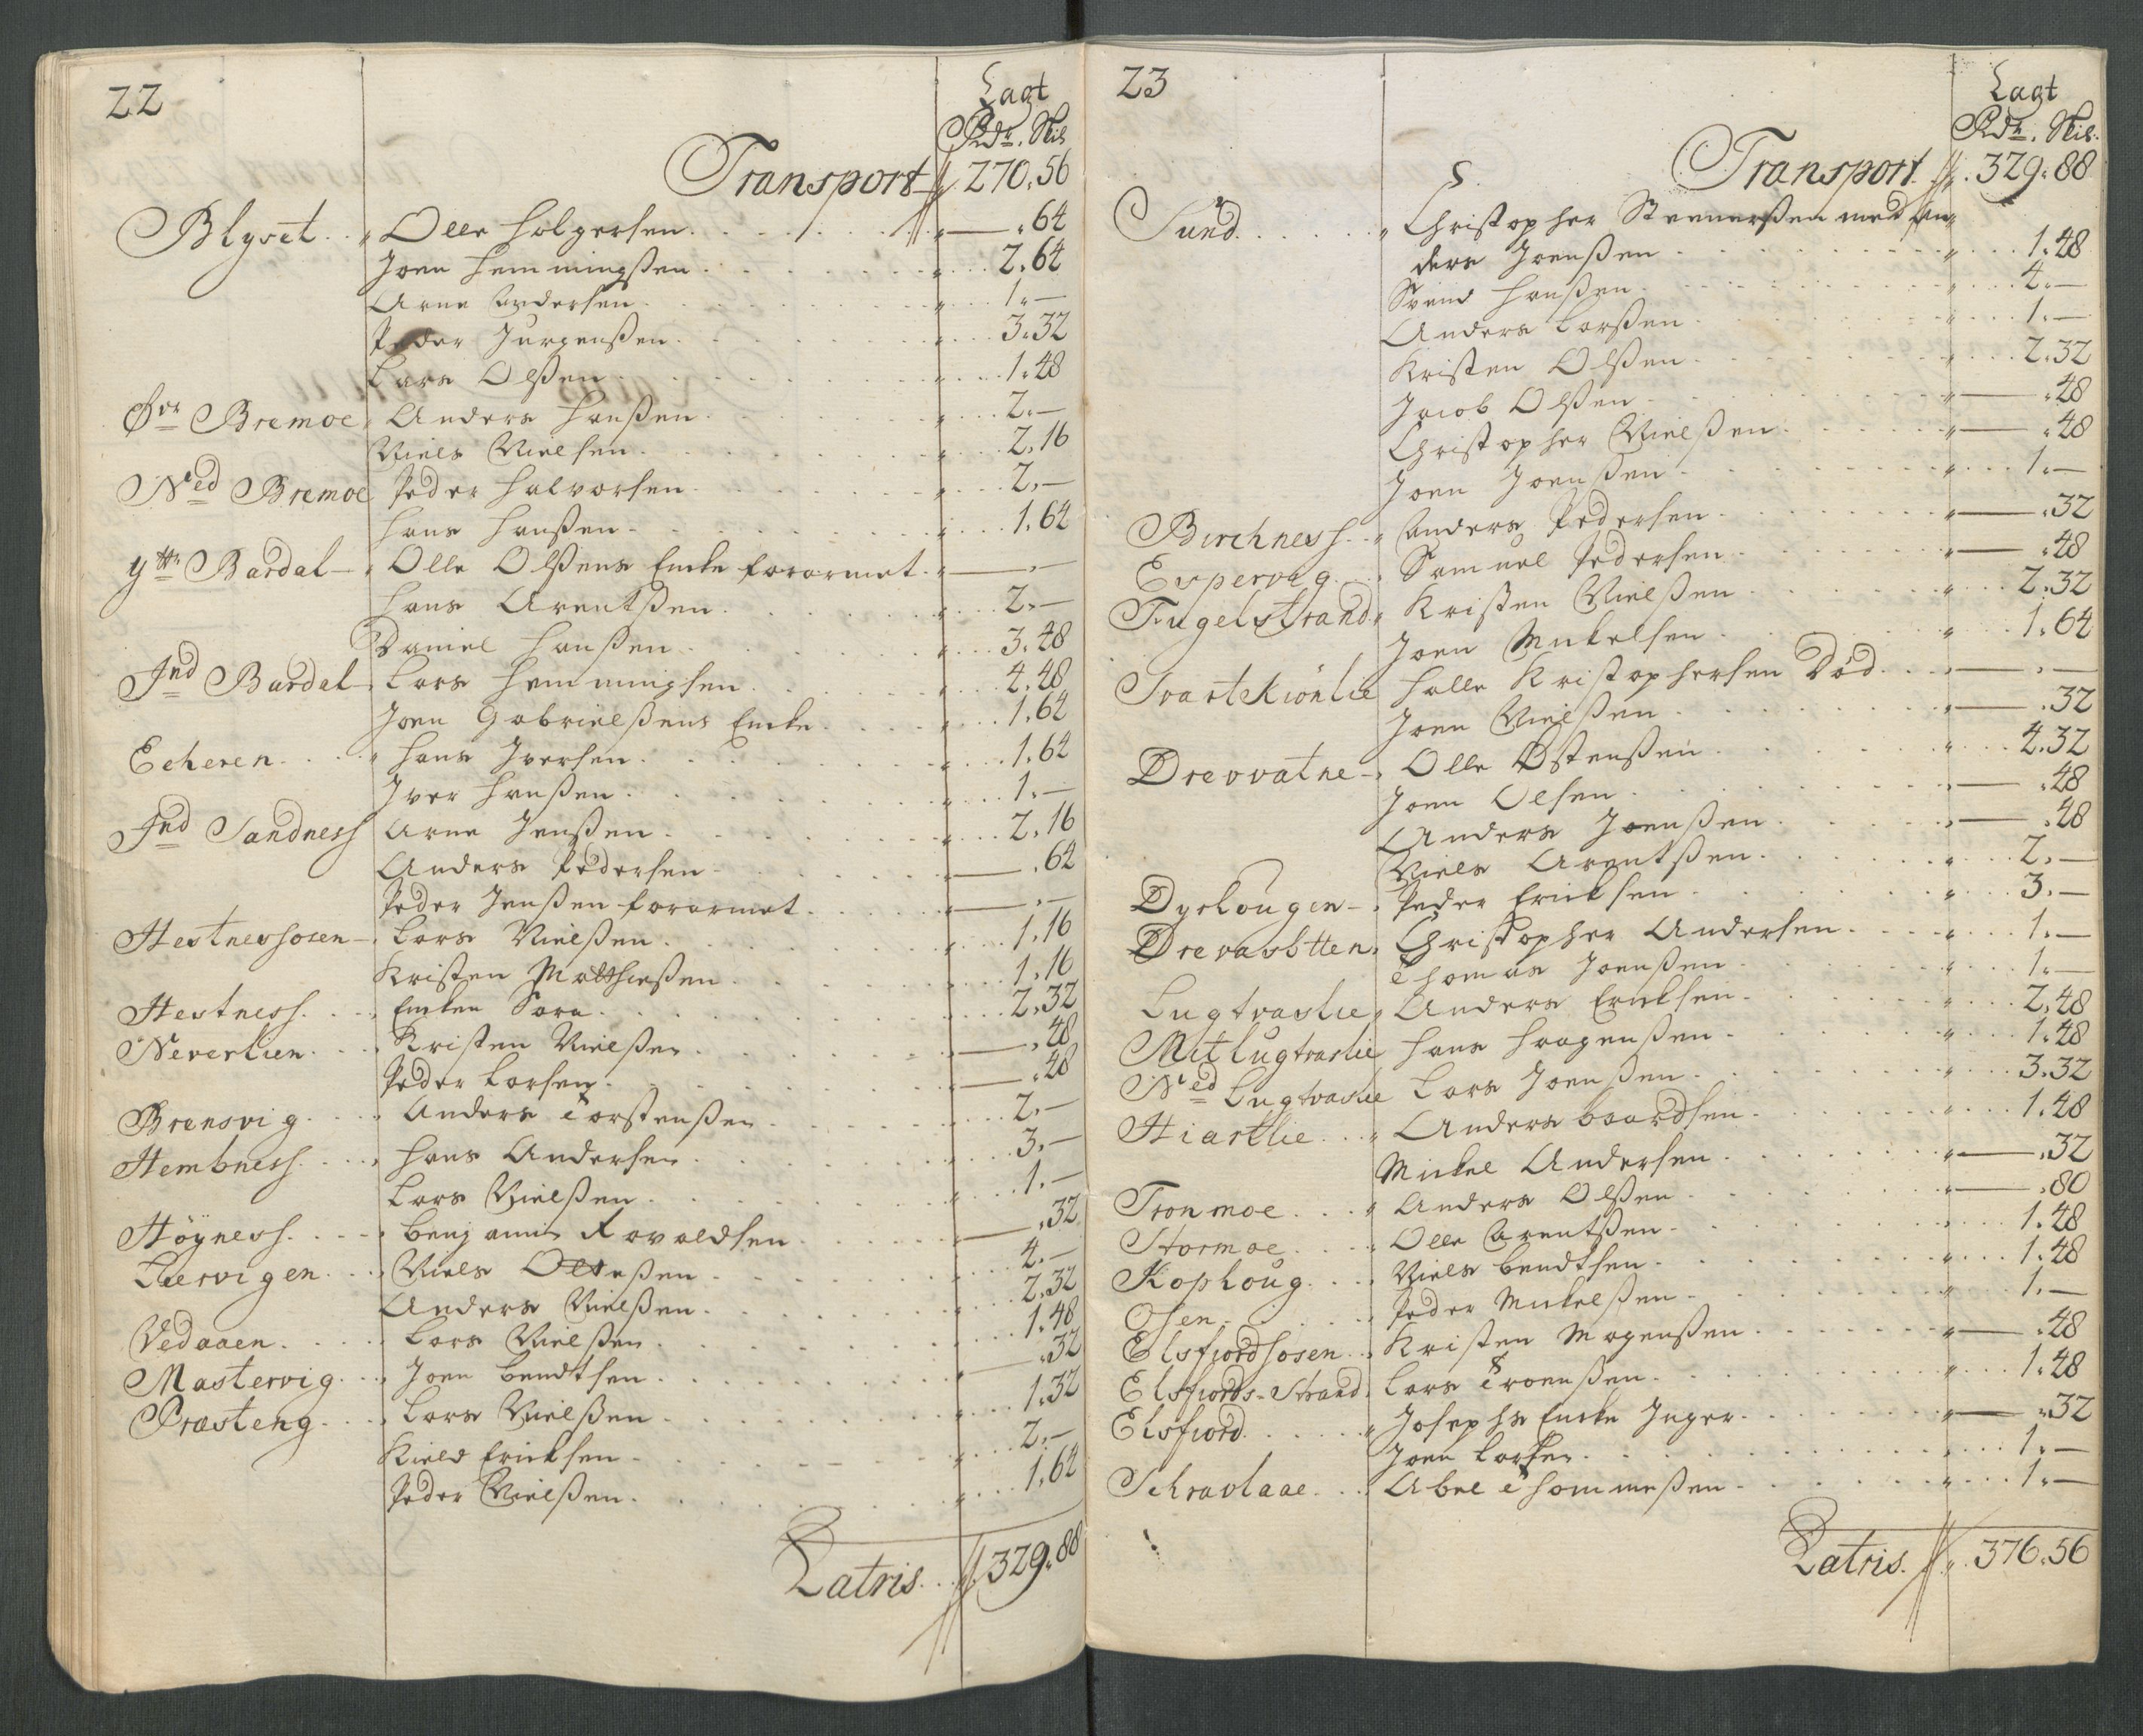 22
Lagt
Rdr. Skil
Transport 270.56
Blyset Olle Holgersen .64
Joen Hemmingsen 2.64
Arne Andersen 1.—
Peder Jurgensen 3.32
Lars Olsen 1.48
Øvr Bremoe Anders Hansen 2.—
Niels Nielsen 2.16
Ned Bremoe Peder Halvorsen 2.—
Hans Hansen 1.64
Ytt Bardal Olle Olsens Encke forarmet —.—
Hans Arentsen 2.—
Daniel Hansen 3.48
Ind Bardal Lars Hemmingsen 4.48
Joen Gabrielsens Encke 1.64
Echeren Hans Iversen 1.64
Iver Hansen 1.—
Ind Sandness Arne Jensen 2.16
Anders Pedersen —.64
Peder Jensen forarmet —.—
Hestnessosen Lars Nielsen 1.16
Kristen Matthiesen 1.16
Hestness Encken Sara 2.32
Neverlien Kristen Nielsen —.48
Peder Larsen —.48
Brensvig Anders Torstensen 2.—
Hembness Hans Andersen 3.—
Lars Nielsen 1.—
Höyness Benjamin Rovoldsen —.32
Leervigen Niels Olsen 4.—
Anders Nielsen 2.32
Vedaaen Lars Nielsen 1.48
Mastervig Joen Bendtsen —.32
Præsteng Lars Nielsen 1.32
Kield Ericksen 2.—
Peder Nielsen 1.64
Latris 329.88
23
Lagt
Rdr. Skil.
Transport 329.88
Sund Christopher Steenersen med An
ders Joensen 1.48
Svend Hansen 4.—
Anders Larsen 1.—
Kristen Olsen 2.32
Jacob Olsen —.48
Christopher Nielsen —.48
Joen Joensen 1.—
Birchness Anders Pedersen —.32
Espervig Samuel Pedersen —.48
Fugelstrand Kristen Nielsen 2.32
Joen Mickelsen 1.64
Svartekiönlie Halle Kristophersen Död —.—
Joen Nielsen —.32
Drevvatne Olle Östensen 4.32
Joen Olsen —.48
Anders Joensen —.48
Niels Arentsen 2.—
Dyrhougen Peder Ericksen 3.—
Drevasbtten Christopher Andersen 1.—
Thomas Joensen 1.—
Lugtvaslie Anders Ericksen 2.48
Mitlugtvaslie Hans Haagensen 1.48
Ned Lugtvaslie Lars Joensen 3.32
Hiartlie Anders Baardsen 1.48
Mickel Andersen —.32
Tronmoe Anders Olsen —.80
Stormoe Olle Arentsen 1.48
Kophoug Niels Bendtsen 1.48
Osen Peder Mickelsen 1.—
Elsfiordsosen Kristen Mogensen —.48
Elsfiords-Strand Lars Troensen 1.48
Elsfiord Josephs Encke Inger —.32
Joen Larsen 1.—
Schravlaae Abel Thommesen 1.—
Latris. 376.56